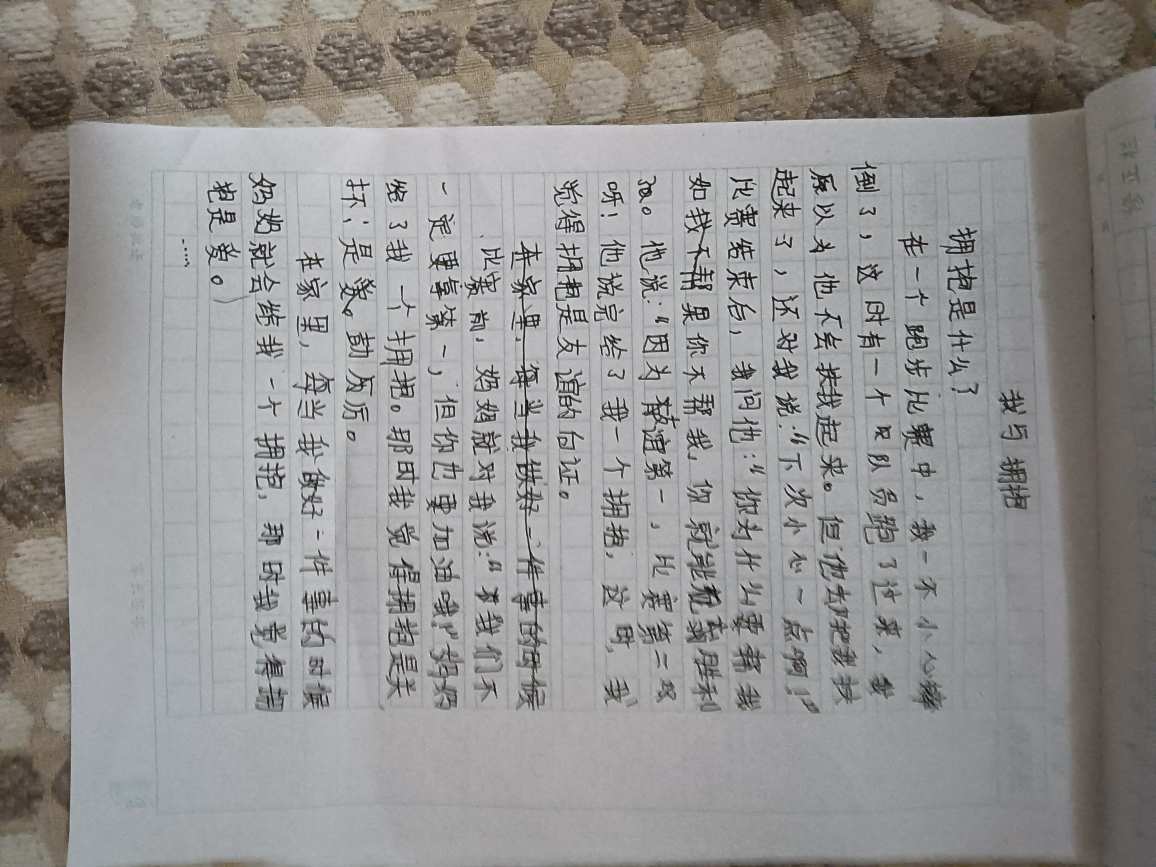 我与拥抱
拥抱是什么？
在一个跑步比赛中，我一不小心摔
倒了，这时有一个队员跑了过来，我
原以为他不会扶我起来。但他却把我扶
起来了，还对我说：“下次小心一点啊！”
比赛结束后，我问他：“你为什么要帮我
如果你不帮我，你就能取得胜利
他说：“因为友谊第一，比赛第二呀
呀！他说完给了我一个拥抱，这时，我
觉得拥抱是友谊的白证。
在家里，每当我做好一件事的时候
比赛前，妈妈就对我说：“我们不
一定要拿第一，但你也要加油哦！”妈妈
给了我一个拥抱。那时我觉得拥抱是关
怀，是爱。鼓历后。
在家里，每当我做好一件事的时候
妈妈就会给我一个拥抱，那时我觉得拥
抱是爱。
……